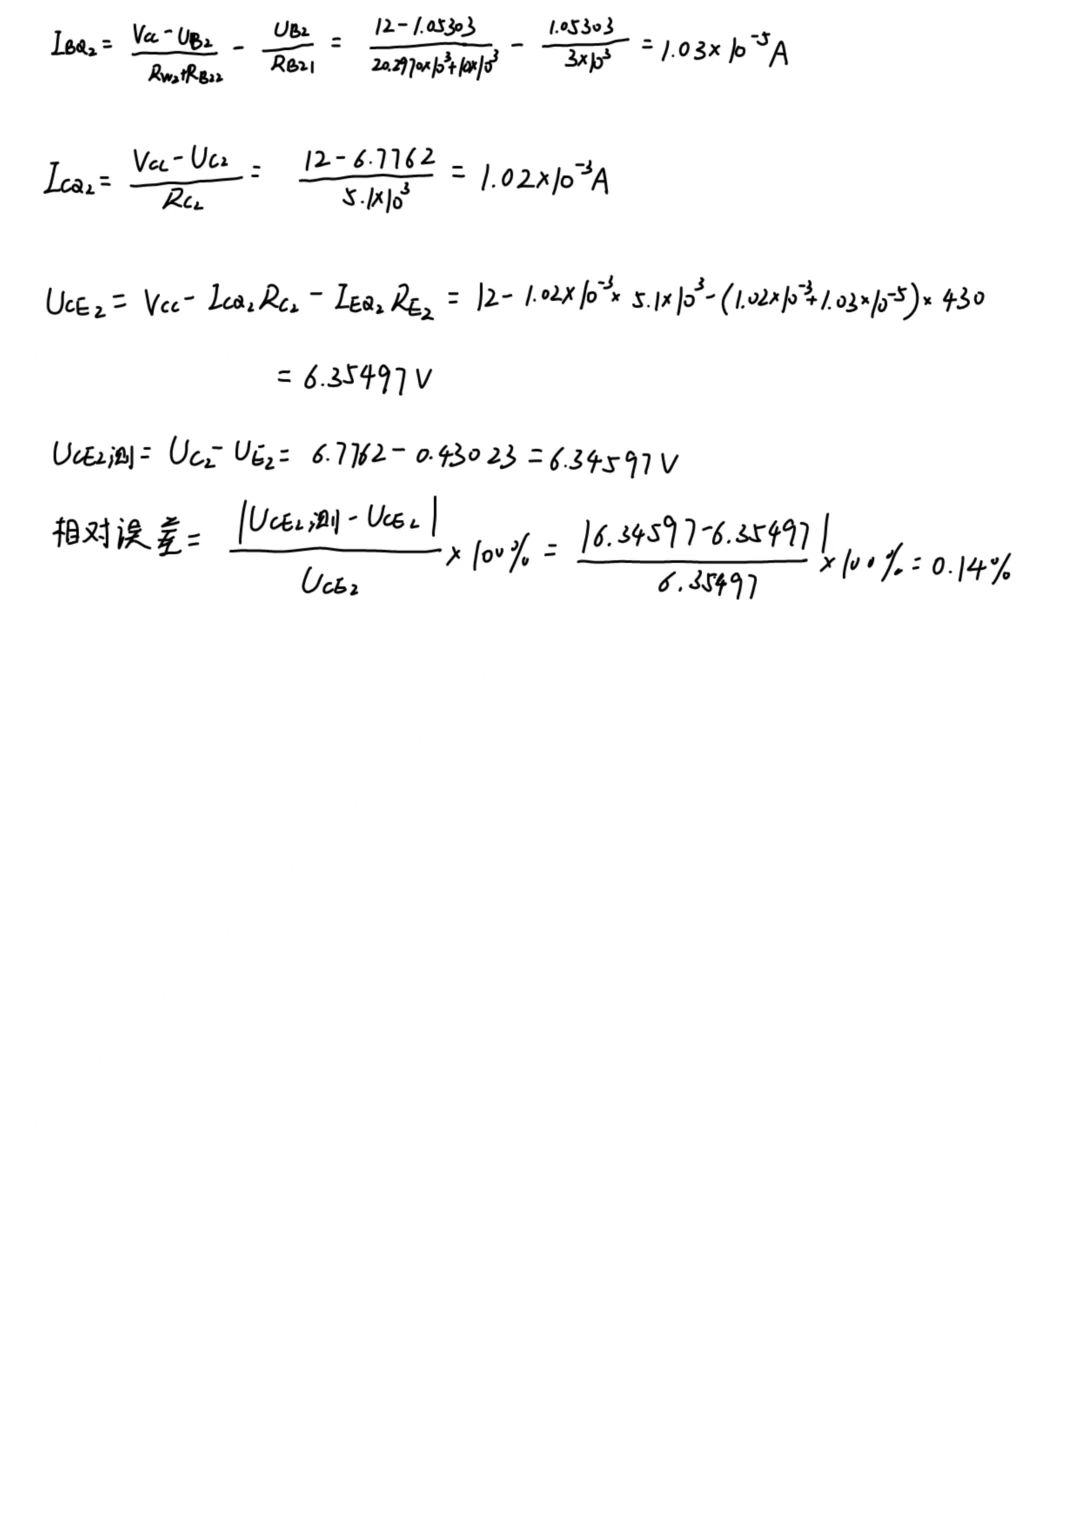 I_{BQ_2} = \frac{V_{CC} - U_{B_2}}{R_{W_2} + R_{B22}} - \frac{U_{B2}}{R_{B21}} = \frac{12 - 1.05303}{20.2970×10^3 + 10×10^3} - \frac{1.05303}{3×10^3} = 1.03×10^{-5} A
I_{CQ_2} = \frac{V_{CC} - U_{C2}}{R_{C_2}} = \frac{12 - 6.7762}{5.1×10^3} = 1.02×10^{-3} A
U_{CE_2} = V_{CC} - I_{CQ_2} R_{C_2} - I_{EQ_2} R_{E_2} = 12 - 1.02×10^{-3} × 5.1×10^3 - (1.02×10^{-3} + 1.03×10^{-5}) × 430
= 6.35497 V
U_{CE2测} = U_{C_2} - U_{E_2} = 6.7762 - 0.43023 = 6.34597 V
相对误差 = \frac{|U_{CE_2测} - U_{CE_2}|}{U_{CE_2}} × 100% = \frac{|6.34597 - 6.35497|}{6.35497} × 100% = 0.14%